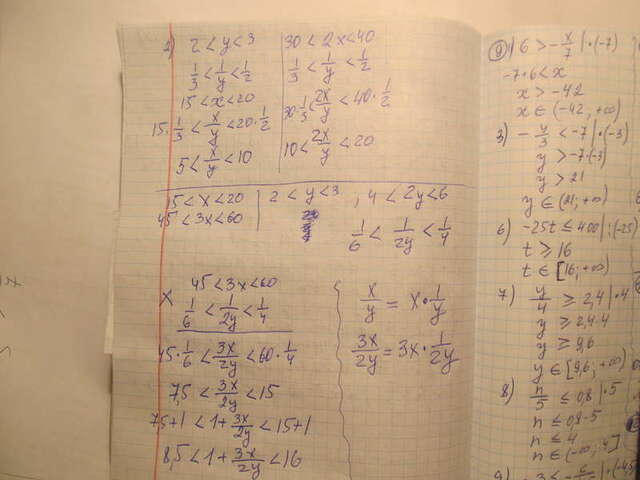 2) 2 < y < 3
1/3 < 1/y < 1/2
15 < x < 20
15·1/3 < x/y < 20·1/2
5 < x/y < 10
30 < 2x < 40
1/3 < 1/y < 1/2
30·1/3 < 2x/y < 40·1/2
10 < 2x/y < 20
15 < x < 20
45 < 3x < 60
2 < y < 3 , 4 < 2y < 6
1/6 < 1/2y < 1/4
45 < 3x < 60
x 1/6 < 1/2y < 1/4
45·1/6 < 3x/2y < 60·1/4
7,5 < 3x/2y < 15
7,5+1 < 1+3x/2y < 15+1
8,5 < 1+3x/2y < 16
x/y = x·1/y
3x/2y = 3x·1/2y
9 6 > -x/7 |·(-7)
-7·6 < x
x > -42
x ∈ (-42; +∞)
3) -y/3 < -7 |·(-3)
y > -7·(-3)
y > 21
y ∈ (21; +∞)
6) -25t ≤ 400 |:(-25)
t ≥ 16
t ∈ [16; +∞)
7) y/4 ≥ 2,4 |·4
y ≥ 2,4·4
y ≥ 9,6
y ∈ [9,6; +∞)
8) n/5 ≤ 0,8 |·5
n ≤ 0,8·5
n ≤ 4
n ∈ (-∞; 4]